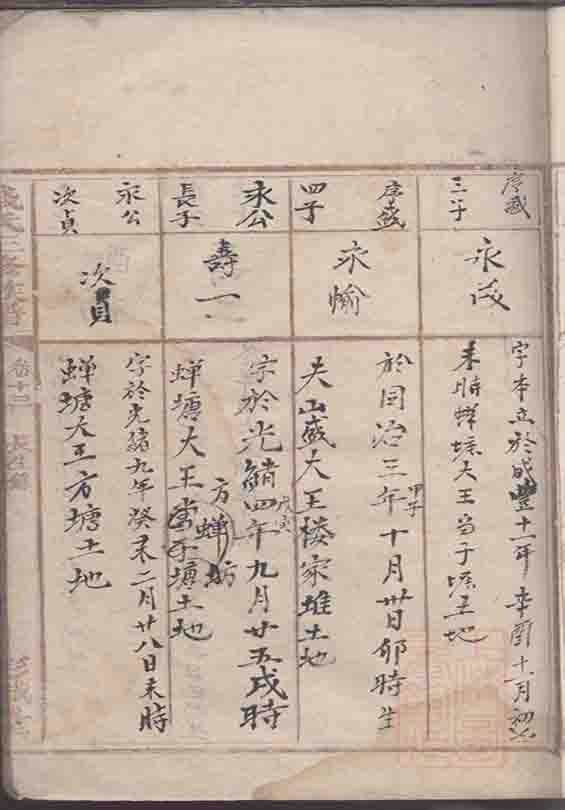 序盛
三子
永茂
字本立於咸豐十一年辛酉十一月初
未時蟬塘大王當子塘土地
序盛
四子
永愉
於同治三年甲子十月卅日卯時生
夫山盛大王楼家堆土地
永公
長子
壽一
字於光緒四年戊寅九月廿五戌時
蟬塘大王當子塘土地
方蟬塘
永公
次貞
次貞
字於光緒九年癸未二月廿八日未時
蟬塘大王方塘土地
卷十三